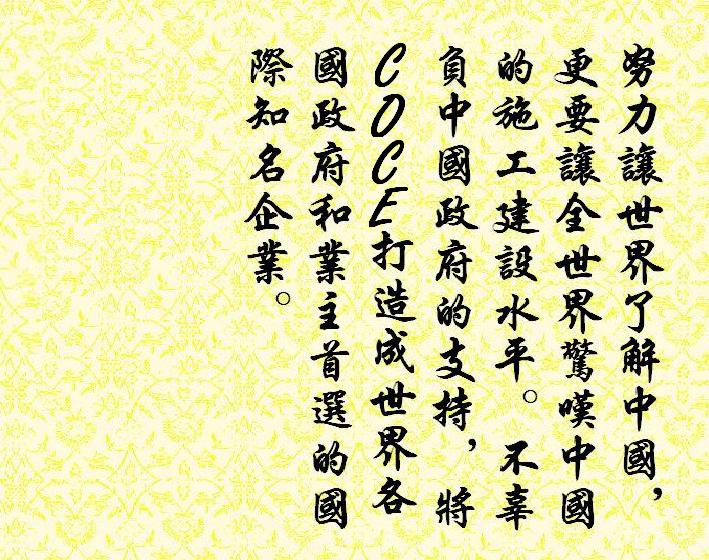 努力讓世界了解中國，
更要讓全世界驚嘆中國
的施工建設水平。不辜
負中國政府的支持，將
COCE打造成世界各
國政府和業主首選的國
際知名企業。